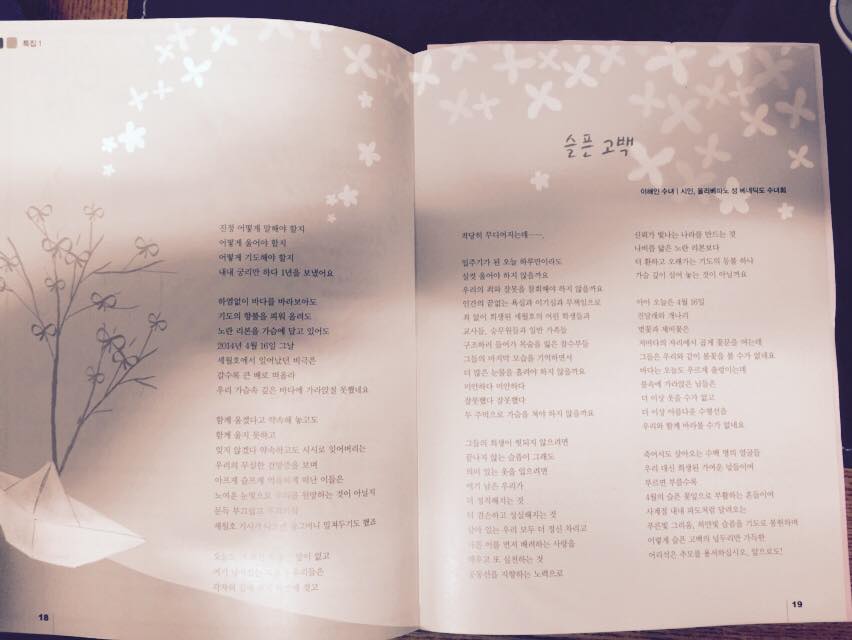 특집 1
진정 어떻게 말해야 할지
어떻게 울어야 할지
어떻게 기도해야 할지
내내 궁리만 하다 1년을 보냈어요
하염없이 바다를 바라보아도
기도의 향불을 피워 올려도
노란 리본을 가슴에 달고 있어도
2014년 4월 16일 그날
세월호에서 일어났던 비극은
갈수록 큰 배로 떠올라
우리 가슴속 깊은 바다에 가라앉질 못했네요
함께 울겠다고 약속해 놓고도
함께 울지 못하고
잊지 않겠다 약속하고도 시시로 잊어버리는
우리의 무심한 건망증을 보며
아프게 슬프게 억울하게 떠난 이들은
노여운 눈빛으로 우리를 원망하는 것이 아닐지
문득 부끄럽고
세월호 기사가 나오면 슬그머니 밀쳐두기도 했죠
오늘도
없고
18
슬픈 고백
이해인 수녀 | 시인, 올리베따노 성 베네딕도 수녀회
적당히 무디어지는데……,
일주기가 된 오늘 하루만이라도
실컷 울어야 하지 않을까요
우리의 죄와 잘못을 참회해야 하지 않을까요
인간의 끝없는 욕심과 이기심과 무책임으로
죄 없이 희생된 세월호의 어린 학생들과
교사들, 승무원들과 일반 가족들
구조하러 들어가 목숨을 잃은 잠수부들
그들의 마지막 모습을 기억하면서
더 많은 눈물을 흘려야 하지 않을까요
미안하다 미안하다
잘못했다 잘못했다
두 주먹으로 가슴을 쳐야 하지 않을까요
그들의 희생이 헛되지 않으려면
끝나지 않는 슬픔이 그래도
의미 있는 옷을 입으려면
여기 남은 우리가
더 정직해지는 것
더 겸손하고 성실해지는 것
살아 있는 우리 모두 더 정신 차리고
다른 이를 먼저 배려하는 사랑을
배우고 또 실천하는 것
공동선을 지향하는 노력으로
신뢰가 빛나는 나라를 만드는 것
나비를 닮은 노란 리본보다
더 환하고 오래가는 기도의 등불 하나
가슴 깊이 심어 놓는 것이 아닐까요
아아 오늘은 4월 16일
진달래와 개나리
벚꽃과 제비꽃은
저마다의 자리에서 곱게 꽃문을 여는데
그들은 우리와 같이 봄꽃을 볼 수가 없네요
바다는 오늘도 푸르게 출렁이는데
물속에 가라앉은 님들은
더 이상 웃을 수가 없고
더 이상 아름다운 수평선을
우리와 함께 바라볼 수가 없네요
죽어서도 살아오는 수백 명의 얼굴들
우리 대신 희생된 가여운 넋들이여
부르면 부를수록
4월의 슬픈 꽃잎으로 부활하는 혼들이여
사계절 내내 파도처럼 달려오는
푸른빛 그리움, 하얀빛 슬픔을 기도로 봉헌하며
이렇게 슬픈 고백의 넋두리만 가득한
어리석은 추모를 용서하십시오, 앞으로도!
19